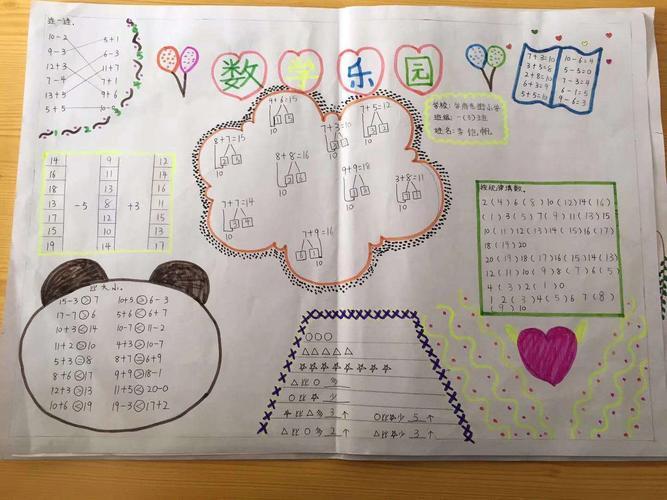 连一连.
10-2 5+1
9-3 6-3
12+3 11+7
7-4 7+1
13+5 9+6
5+5 10-0
数学乐园
7+3=10 10-6=4
3+5=8 5-5=0
2+8=10 7-3=4
6+3=9 6-1=5
5+5=10 9-6=3
班级:一(3)班
姓名:李
14 9 12
16 11 14
18 13 16
13 -5 8 +3 11
17 12 15
15 10
19 14 17
9+6=15
10
8+7=15
10
7+3=10
7+5=12
10
8+8=16
10
9+9=18
10
3+8=11
10
7+7=14
10
7+9=16
10
按规律填数.
2(4)6(8)10(12)14(16)
(1)3(5)7(9)11(13)15
10(11)12(13)14(15)16(17)
18(19)20
20(19)18(17)16(15)14(13)
12(11)10(9)8(7)6(5)
4(3)2(1)0
1 2(3)4(5)6 7(8)
(9)10
比大小.
15-3>7 10+5>6-3
17-7>6 5+6<6+7
10+3<14 10-7<11-2
11+2>10 4+3>10-7
5+3=8 8+7=6+9
8+6<17 9+9>18-1
12+3>13 11+5<20-0
10+6<19 19-3<17+2
○○○
△△△△△
☆☆☆☆☆☆☆☆
△比○多
○比☆少
☆比△多 3 个 ○比☆少 5 个
△比○多 2 个 △比☆少 3 个